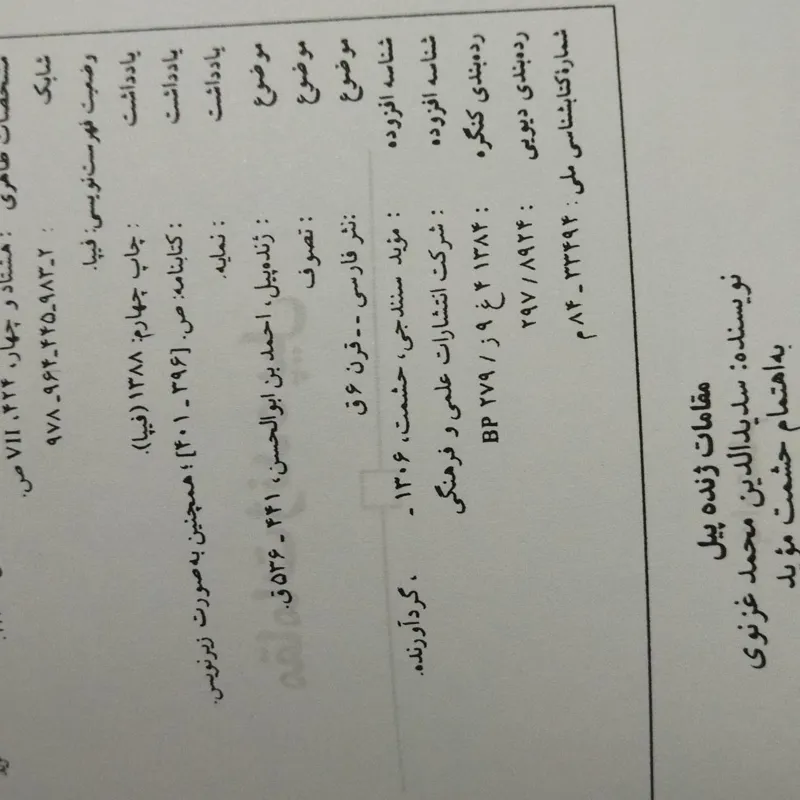 مشخصات ظاهری : هشتاد و چهار، ۴۲۴، VII ص.
شابک : ۲ـ۹۸۳ـ۴۴۵ـ۹۶۴ـ۹۷۸
وضعیت فهرست‌نویسی: فیپا.
یادداشت : چاپ چهارم: ۱۳۸۸ (فیپا).
یادداشت : کتابنامه: ص. [۳۹۶ ـ ۴۰۱]؛ همچنین به صورت زیرنویس.
یادداشت : نمایه.
موضوع : ژنده‌پیل، احمد بن ابوالحسن، ۴۴۱ ـ ۵۳۶ق.
موضوع : تصوف
موضوع :نثر فارسی -- قرن ۶ق
شناسه افزوده : مؤید سنندجی، حشمت، ۱۳۰۶ - ، گردآورنده.
شناسه افزوده : شرکت انتشارات علمی و فرهنگی
رده‌بندی کنگره : ۱۳۸۴ ۴ غ ۹ ز / BP ۲۷۹
رده‌بندی دیویی : ۲۹۷/۸۹۲۴
شمارهٔ کتابشناسی ملی : ۳۳۴۹۴ ـ ۸۴ م
مقامات ژنده پیل
نویسنده: سدیدالدین محمد غزنوی
به‌اهتمام حشمت مؤید